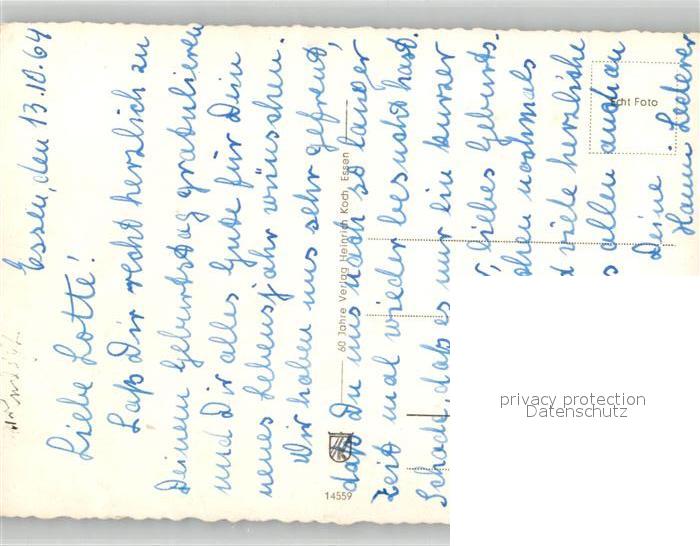 Essen, den 13.10.64
Liebe Lotte!
Laß Dir recht herzlich zu
Deinem Geburtstag gratulieren
und Dir alles Gute für Dein
neues Lebensjahr wünschen.
Wir haben uns sehr gefreut,
daß Du uns nach so langer
Zeit mal wieder besucht hast.
Schade, daß es nur ein kurzer
liebes Geburts-
nochmals
viele herzliche
allen
Deine
60 Jahre Verlag Heinrich Koch, Essen
14559
Echt Foto
privacy protection
Datenschutz